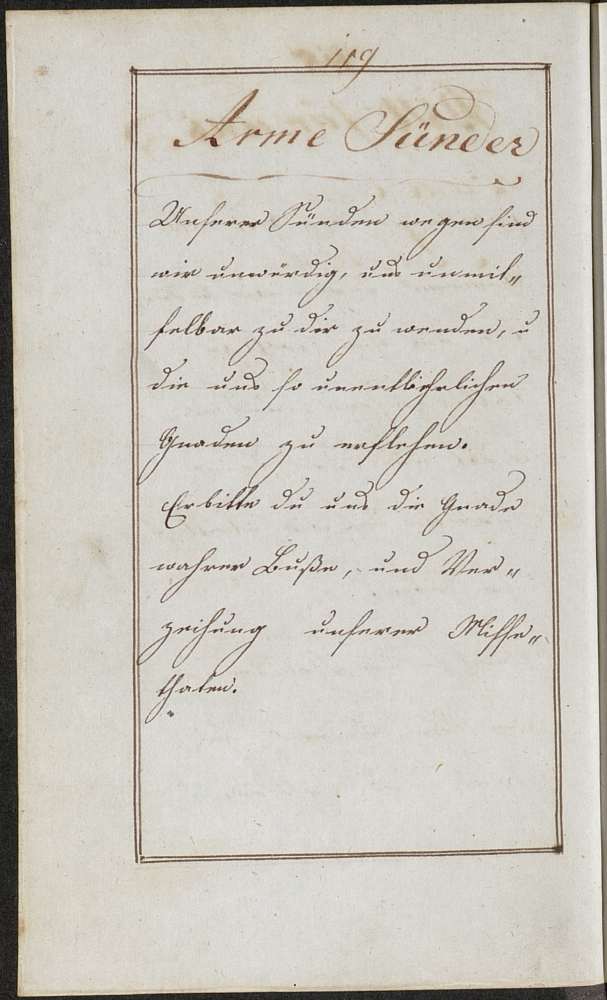 119
Arme Sünder
Unserer Sünden wegen sind
wir unwürdig, uns unmit„
telbar zu dir zu wenden, u
die uns so unentbehrlichen
Gnaden zu erflehen.
Erbitte du uns die Gnade
wahrer Buße, und Ver„
zeihung unserer Misse„
thaten.